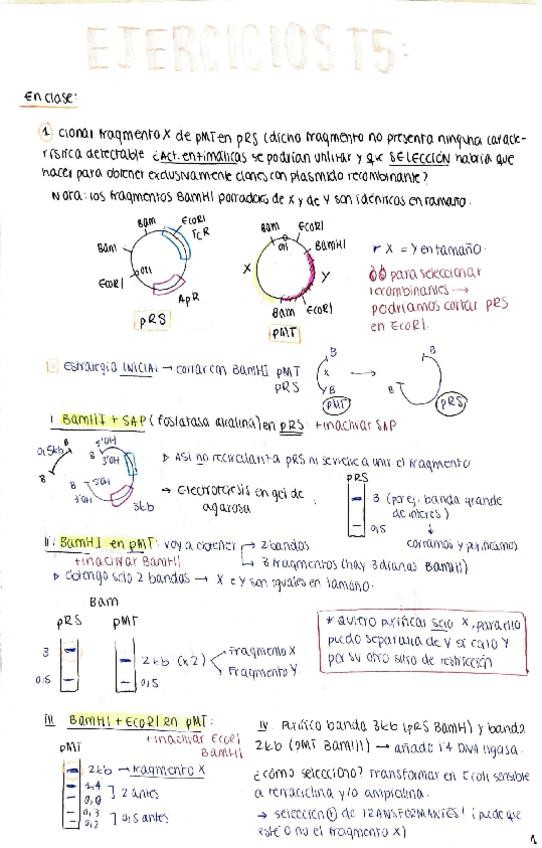 EJERCICIOS T5:
En clase:
1 Clonar fragmento X de pMT en pRS (dicho fragmento no presenta ninguna caracte-
rística detectable ¿Act. enzimáticas se podrían utilizar y qué SELECCIÓN habría que
hacer para obtener exclusivamente clones con plásmido recombinante?
Nota: los fragmentos BamHI portadores de X y de Y son idénticos en tamaño.
Bam EcoRI TcR
Bam
ori
EcoRI
ApR
pRS
Bam EcoRI
ori BamHI
X Y
Bam EcoRI
pMT
X = Y en tamaño.
para seleccionar
recombinantes →
podríamos cortar pRS
en EcoRI.
Estrategia INICIAL → cortar con BamHI pMT
pRS
B
X
B
pMT
B
B
pRS
i. BamHI + SAP (fosfatasa alcalina) en pRS +inactivar SAP
0,5kb B
B
B 5'OH
3'OH
B 5'OH
3'OH
3kb
Así no recircularita pRS ni se vuelve a unir el fragmento
→ Electroforesis en gel de
agarosa
pRS
3 (por ej. banda grande
de interés)
0,5
cortamos y purificamos
ii. BamHI en pMT: voy a obtener → 2 bandas
→ 3 fragmentos (hay 3 dianas BamHI)
+inactivar BamHI
obtengo solo 2 bandas → X e Y son iguales en tamaño.
Bam
pRS pMT
3
0,5
2kb (x2) Fragmento X
Fragmento Y
0,5
* Quiero purificar solo X, para ello
puedo separarla de Y si corto Y
por su otro sitio de restricción
iii. BamHI + EcoRI en pMT:
+inactivar EcoRI
BamHI
pMT
2kb → fragmento X
1,4
0,6 ] 2 antes
0,3
0,2 ] 0,5 antes
iv. Purifico banda 3kb (pRS BamHI) y banda
2kb (pMT BamHI) → añado T4 DNA ligasa.
¿cómo selecciono? Transformar en E.coli sensible
a tetraciclina y/o ampicilina.
→ selección + de TRANSFORMANTES! (puede que
esté o no el fragmento X)
1